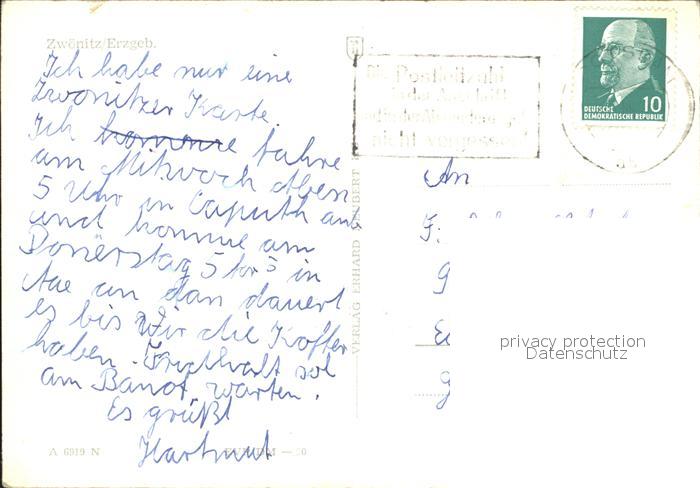 Zwönitz/Erzgeb.
Ich habe nur eine
Zwonitzer Karte.
Ich komme fahre
am Mittwoch Aben
5 Uhr in Caputh am
und komme am
Donerstag 5 vor 5 in
Aue an dan dauert
es bis Wir die Koffer
haben. Friedhalt sol
am Banof warten.
Es grüßt
Hartmut
A 6919 N
VERLAG ERHARD NEUBERT
Die Postleitzahl
in der Anschrift
nicht vergessen!
DEUTSCHE
DEMOKRATISCHE REPUBLIK
10
An
F.
g
E
g
privacy protection
Datenschutz